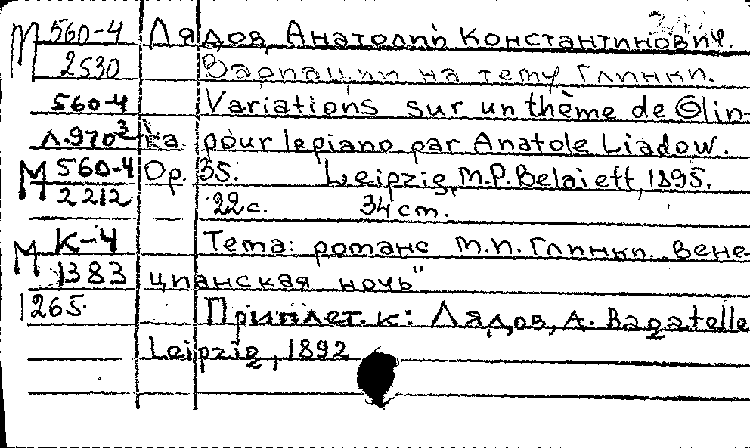 М 560-4 Лядов, Анатолий Константинович.
2530 Вариации на тему Глинки.
560-4 Variations sur un thème de Glin-
Л.970³ ka pour le piano par Anatole Liadow.
М 560-4 Op. 35. Leipzig, M.P. Belaieff, 1895.
2212 22 с. 34 cm.
М К-4 Тема: романс М.И. Глинки „Вене-
1383 цианская ночь"
1265 Приплет. к: Лядов, А. Bagatelle
Leipzig, 1892